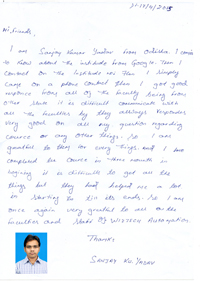 Hi, friends,
I am Sanjay Kumar Yadav from Odisha. I came
to know about the institute from Google. Then I
contact on the institute no. Then I simply
came on a phone contact then I got good
responce from all of the faculty being from
other state it is difficult communicate with
all the faculties by they all responder
very good on all any question regarding
course or any other things. So I am
grateful to them for every things. and I have
completed the course in three month in
begining it is difficult to get all the
things but they helped me a lot
in starting to till its ends. So I am
once again very grateful to all the
faculties and staff of WIZTECH Automation.
Thanks
SANJAY KU. YADAV